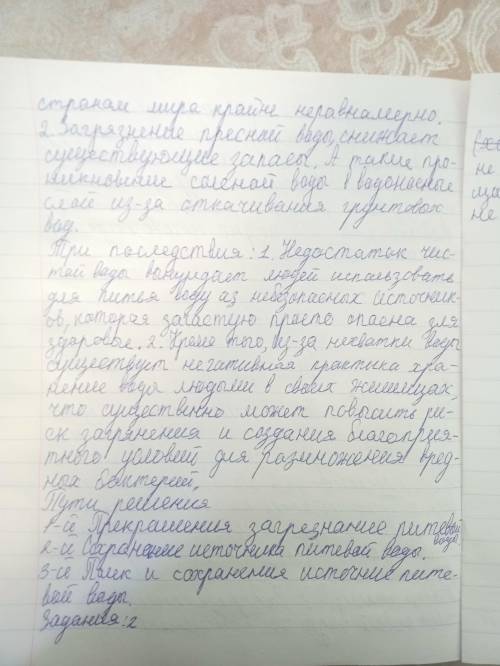 странам мира крайне неравнамерно.
2. Загрязнение пресной воды, снижает
существующие запасы. А также про-
никновение соленой воды в водоносные
слой из-за откачивания грунтовых
вод.
Три последствия: 1. Недостаток чис-
той воды вынуждает людей использовать
для питья воду из небезопасных источник-
ов, которая зачастую просто опасна для
здоровье. 2. Кроме того, из-за нехватки воды
существует негативная практика хра-
нение вода людьми в своих жилищах,
что существенно может повысить ри-
ск загрянения и создания благоприя-
тного условий для размножения вред-
ных бактерий.
Пути решения
1-й Прекрашения загрезнание питевой
воды
2-й Сохранение источника питевой воды.
3-й Поиск и сохранения источние пите-
вой воды.
Задания: 2
не
ща
не